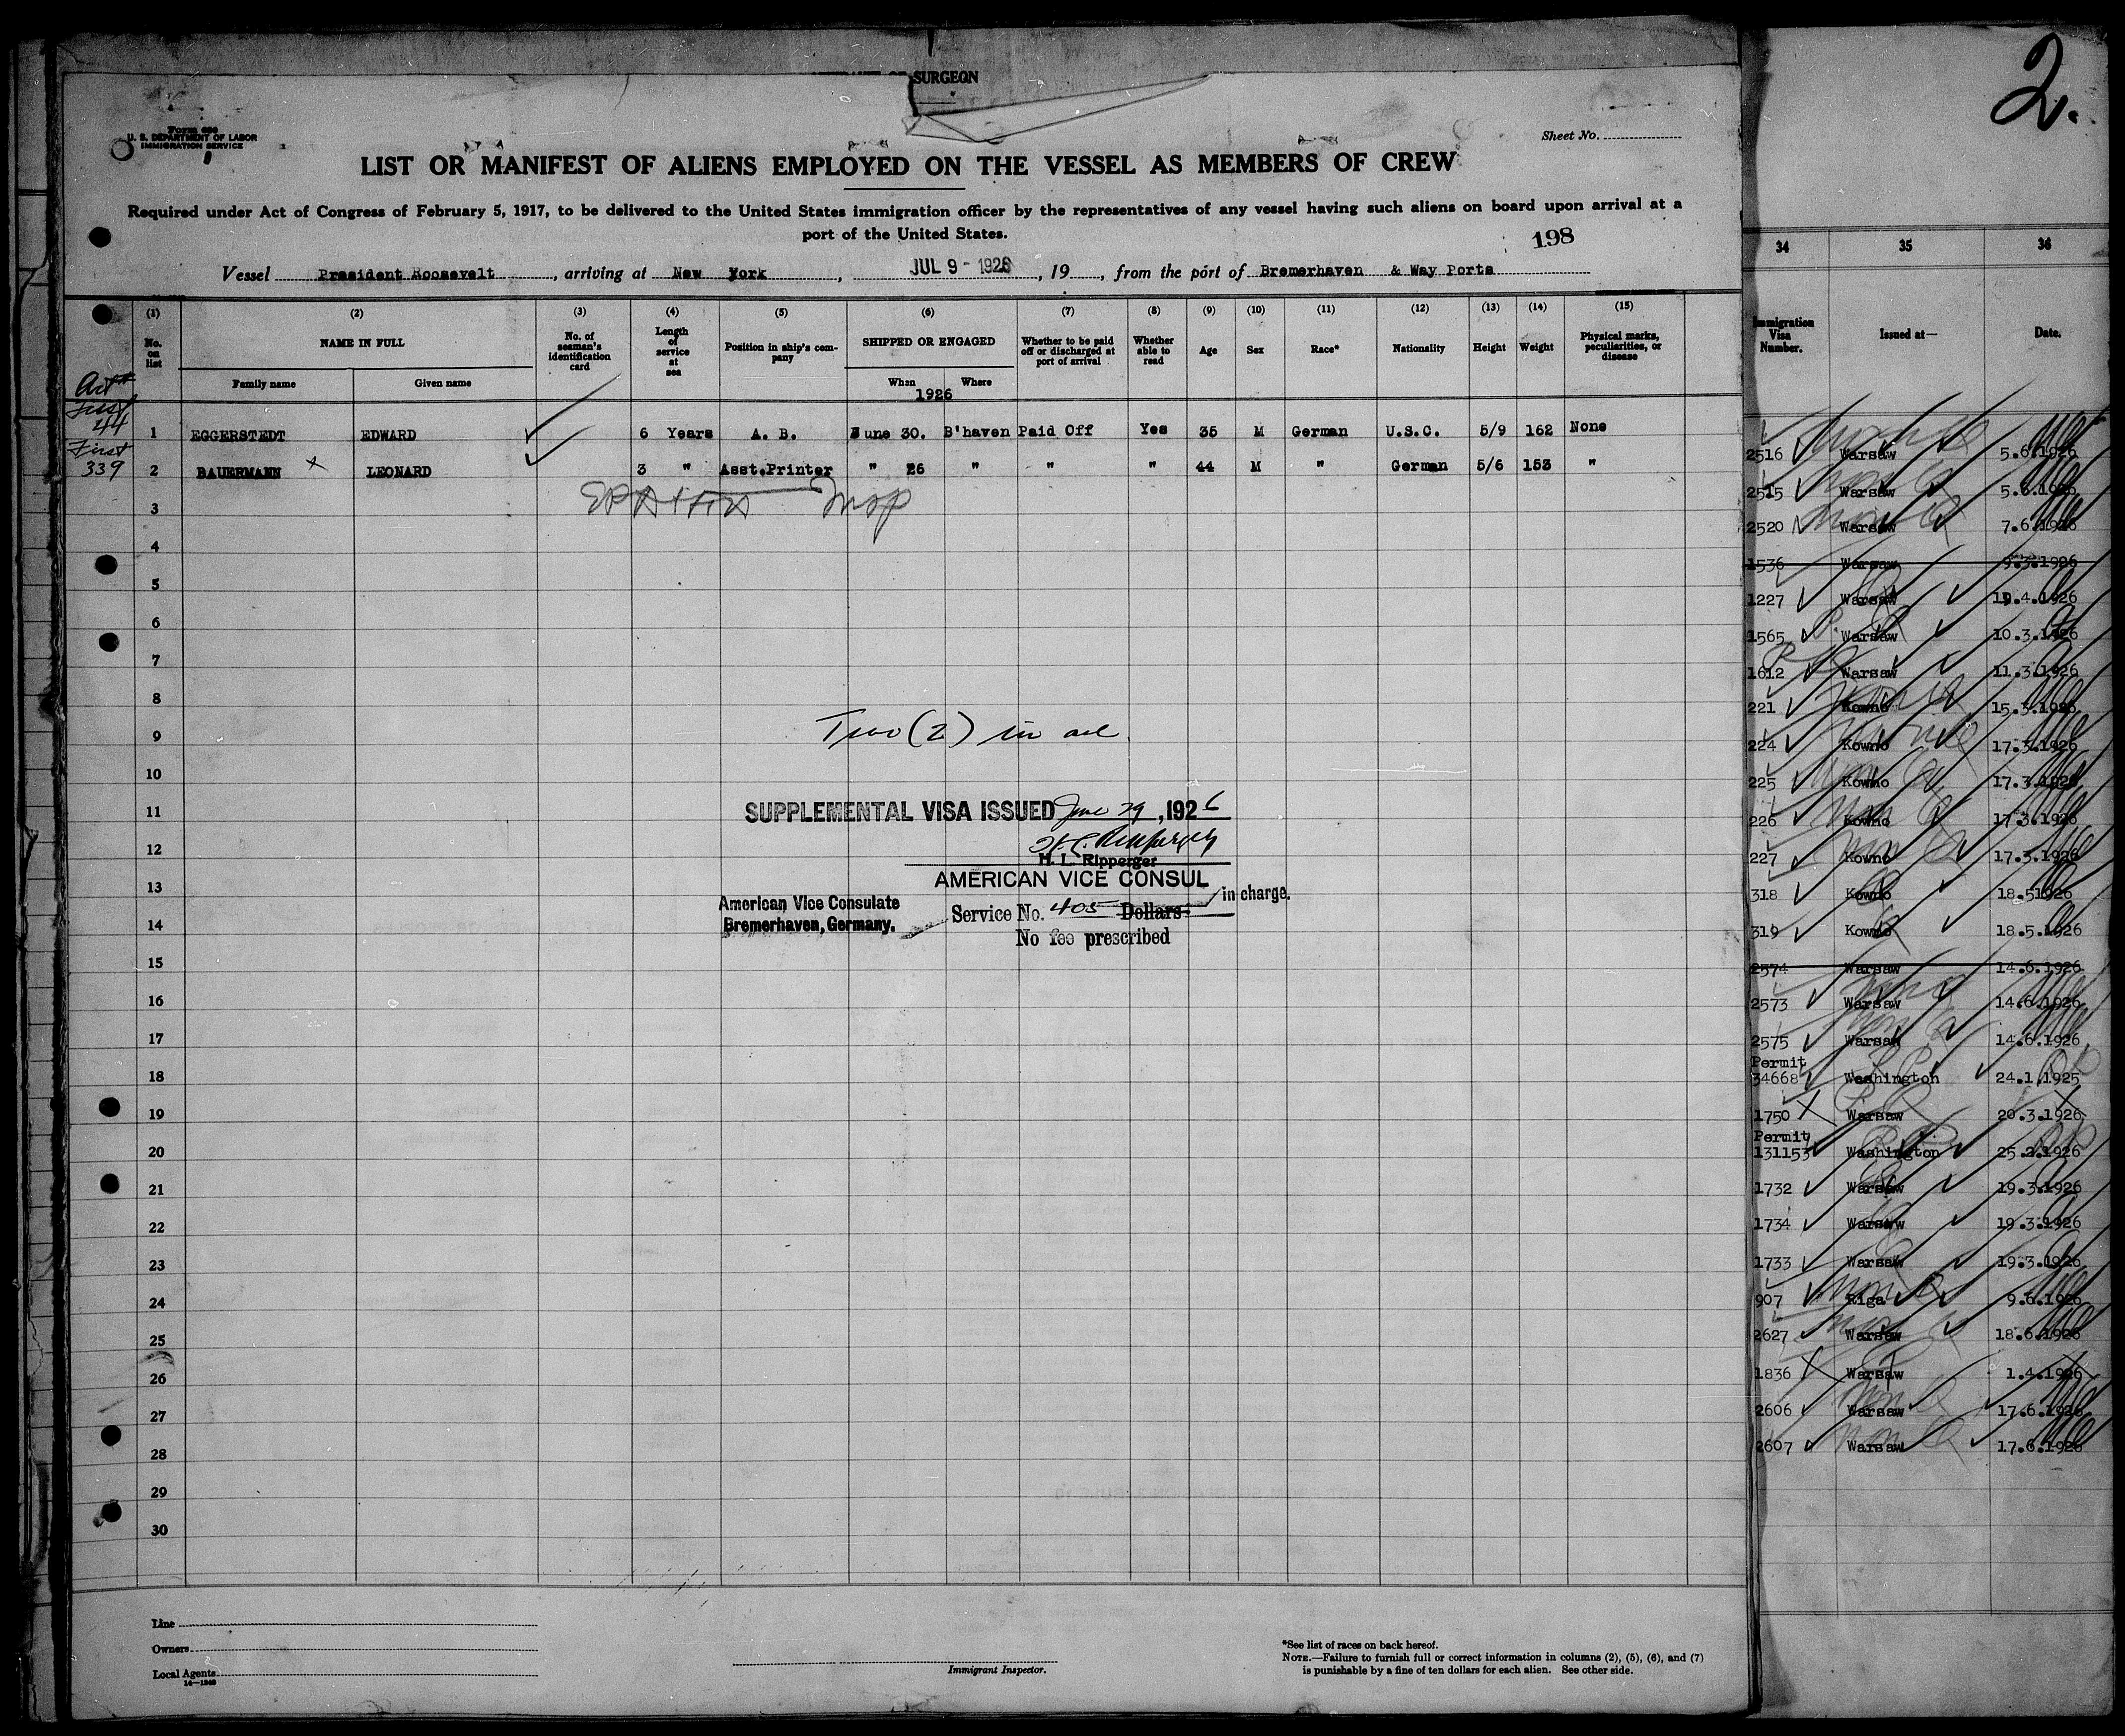 SURGEON
2.
Form 680
U. S. DEPARTMENT OF LABOR
IMMIGRATION SERVICE
Sheet No.
LIST OR MANIFEST OF ALIENS EMPLOYED ON THE VESSEL AS MEMBERS OF CREW
Required under Act of Congress of February 5, 1917, to be delivered to the United States immigration officer by the representatives of any vessel having such aliens on board upon arrival at a
port of the United States.
198
Vessel President Roosevelt, arriving at New York, JUL 9 - 1926, 19, from the port of Bremerhaven & Way Ports
(1) (2) (3) (4) (5) (6) (7) (8) (9) (10) (11) (12) (13) (14) (15)
No. on list
NAME IN FULL
Family name Given name
No. of seaman's identification card
Length of service at sea
Position in ship's company
SHIPPED OR ENGAGED
When Where
1926
Whether to be paid off or discharged at port of arrival
Whether able to read
Age
Sex
Race*
Nationality
Height
Weight
Physical marks, peculiarities, or disease
44
1 EGGERSTEDT EDWARD 6 Years A. B. June 30. B'haven Paid Off Yes 35 M German U.S.C. 5/9 162 None
First
339
2 BAUERMANN X LEONARD 3 " Asst.Printer " 26 " " " 44 M " German 5/6 153 "
3
4
5
6
7
8
Two (2) in all.
9
10
11
SUPPLEMENTAL VISA ISSUED June 29, 1926
12
H. L. Ripperger
AMERICAN VICE CONSUL
13
in charge.
American Vice Consulate
Bremerhaven, Germany.
Service No. 405 Dollars
14
No fee prescribed
15
16
17
18
19
20
21
22
23
24
25
26
27
28
29
30
Line
Owners
Local Agents
14—1240
Immigrant Inspector.
*See list of races on back hereof.
NOTE.—Failure to furnish full or correct information in columns (2), (5), (6), and (7)
is punishable by a fine of ten dollars for each alien. See other side.
34 35 36
Immigration Visa Number. Issued at— Date.
2516 Warsaw 5.6.1926
2515 Warsaw 5.6.1926
2520 Warsaw 7.6.1926
1536 Warsaw 9.3.1926
1227 Warsaw 19.4.1926
1565 Warsaw 10.3.1926
1612 Warsaw 11.3.1926
221 Kowno 15.3.1926
224 Kowno 17.3.1926
225 Kowno 17.3.1926
226 Kowno 17.3.1926
227 Kowno 17.3.1926
318 Kowno 18.51926
319 Kowno 18.5.1926
2574 Warsaw 14.6.1926
2573 Warsaw 14.6.1926
2575 Warsaw 14.6.1926
Permit
34668 Washington 24.1.1925
1750 Warsaw 20.3.1926
Permit
131153 Washington 25.2.1926
1732 Warsaw 19.3.1926
1734 Warsaw 19.3.1926
1733 Warsaw 19.3.1926
907 Riga 9.6.1926
2627 Warsaw 18.6.1926
1836 Warsaw 1.4.1926
2606 Warsaw 17.6.1926
2607 Warsaw 17.6.1926